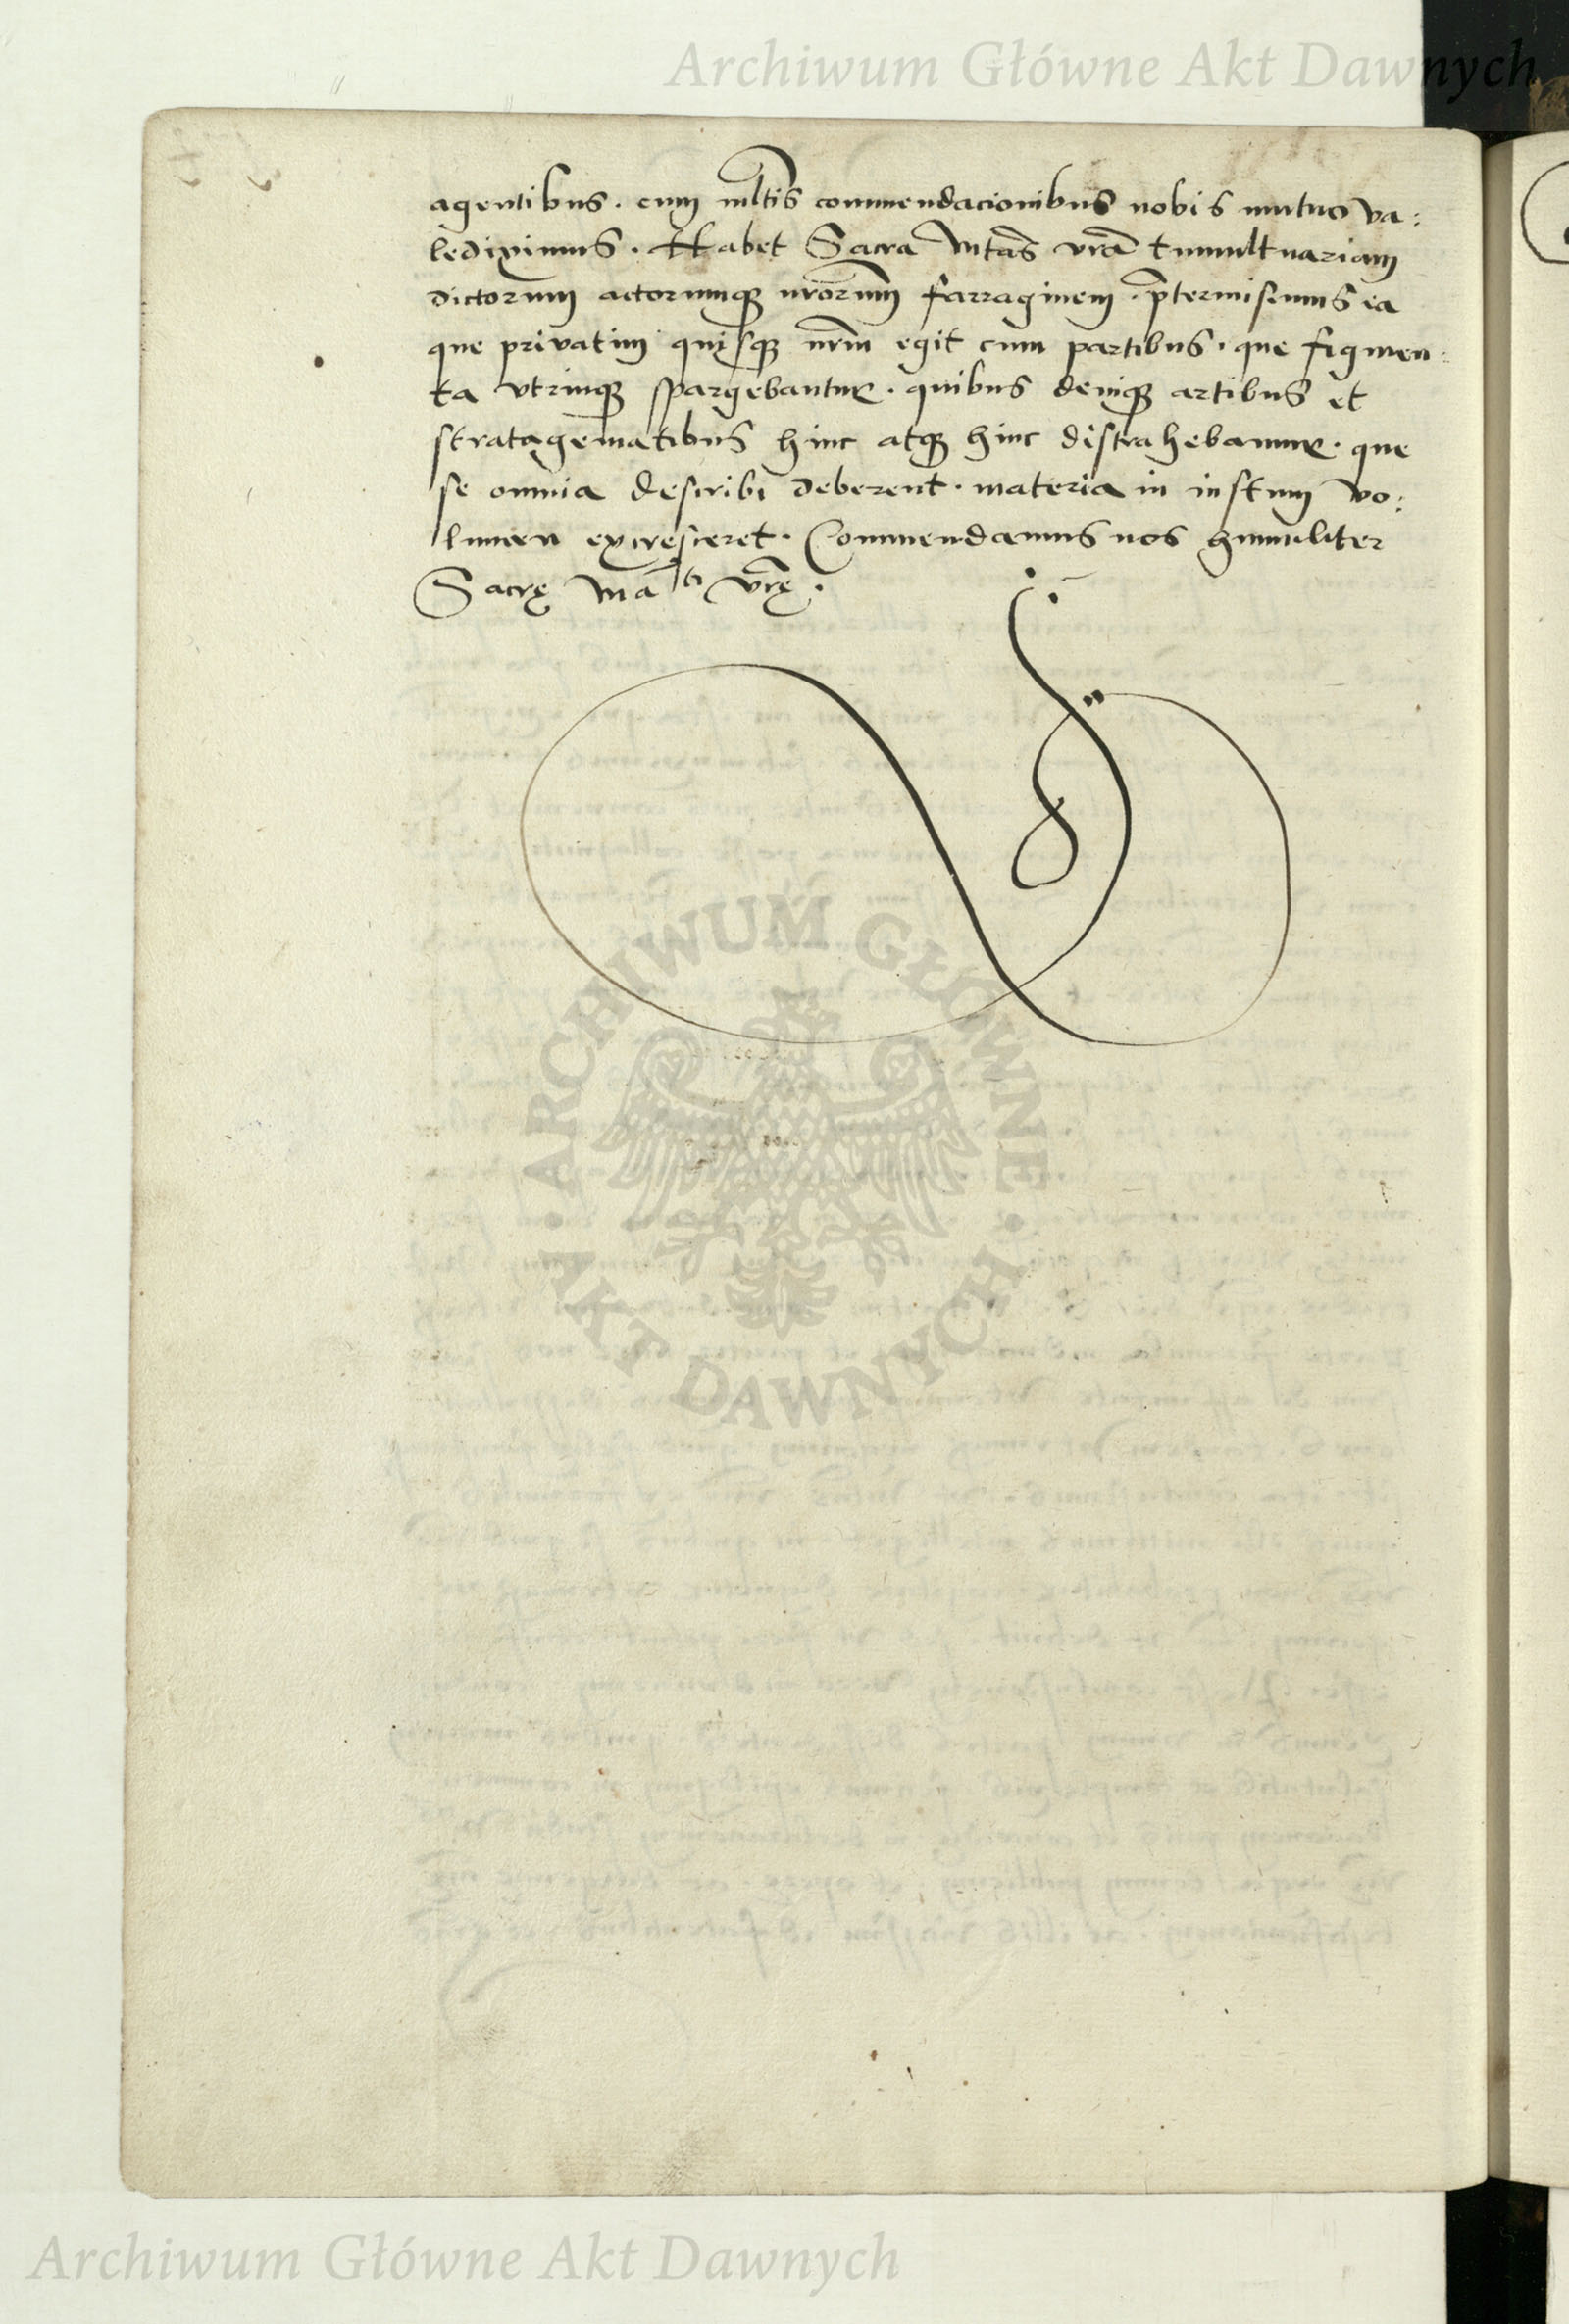 Archiwum Główne Akt Dawnych
agentibus. cum mltis commendacionibus nobis mutuo va:
lediximus. Habet Sacra Mtas vrã tumultuariam
dictorum actorumqꝫ nrorum farraginem. p̃termisimus ea
que privatim quisqꝫ nrm̃ egit cum partibus. que figmen:
ta vtrinqꝫ spargebantur. quibus deniqꝫ artibus et
stratagematibus hinc atqꝫ hinc distrahebamur. que
se omnia describi deberent. materia in iustum vo:
lumen excresceret. Commendamus nos humiliter
Sacrę Mãti vrę.
ARCHIWUM GŁÓWNE
AKT DAWNYCH
Archiwum Główne Akt Dawnych